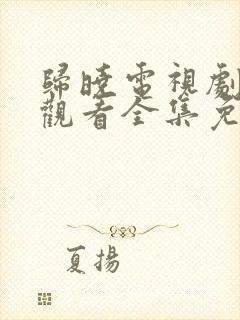 歸曉電視劇
觀看全集免
夏揚